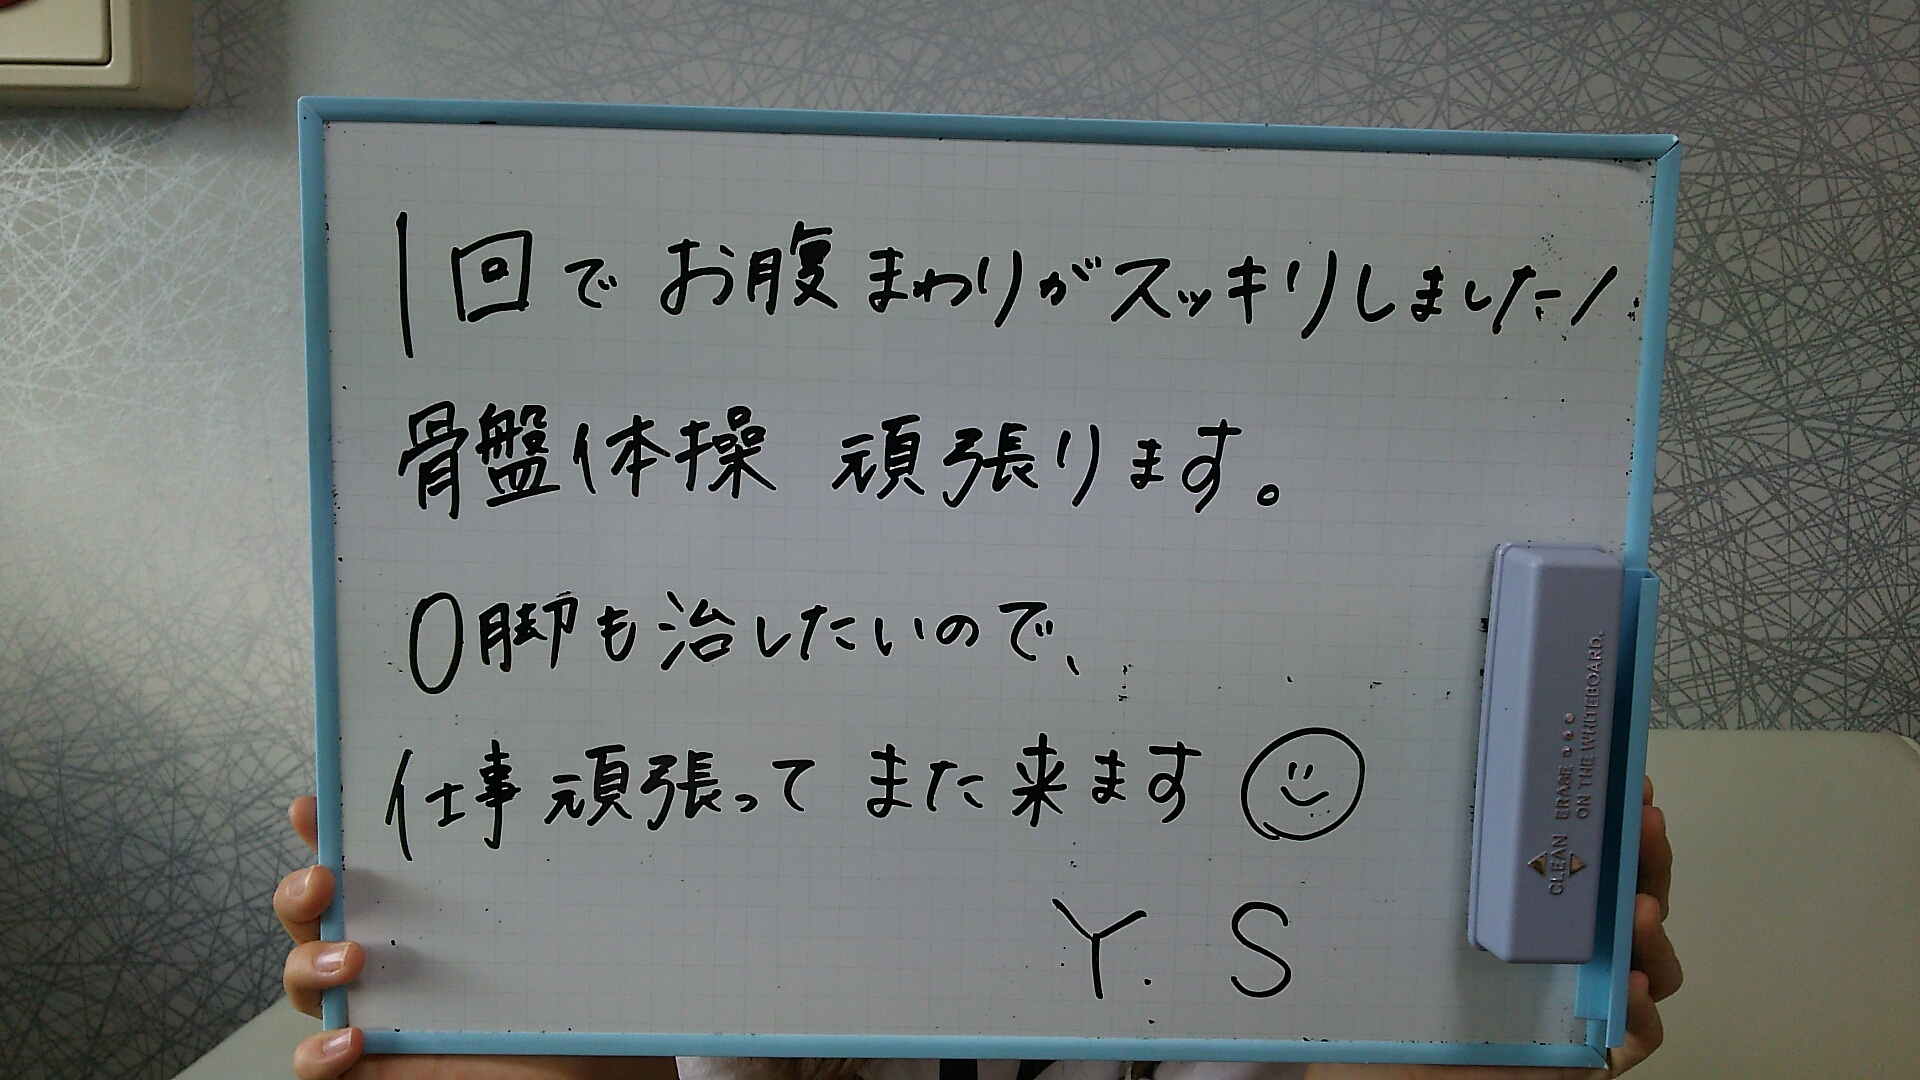 1回でお腹まわりがスッキリしました!
骨盤体操 頑張ります。
O脚も治したいので、
仕事頑張って また来ます
Y. S
CLEAN ERASE
ON THE WHITEBOARD.